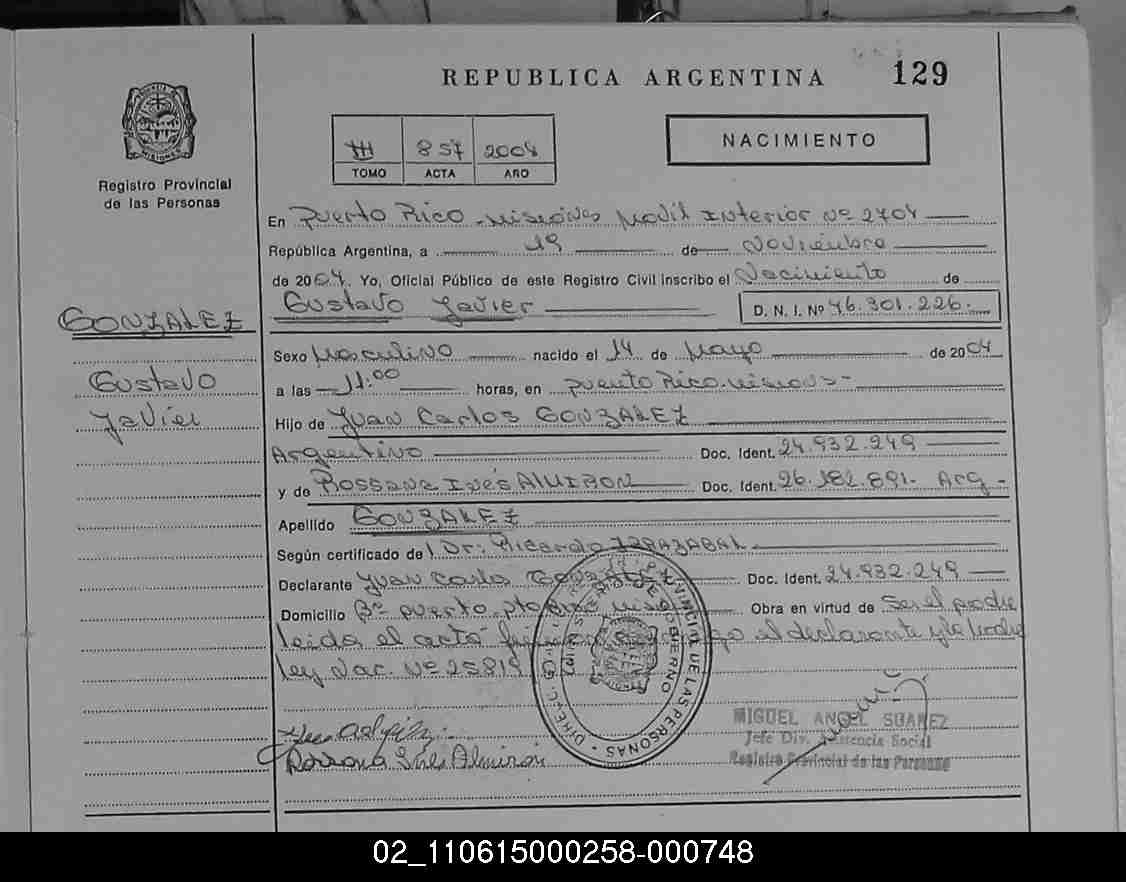 REPUBLICA ARGENTINA 129
III 857 2004
TOMO ACTA AÑO
NACIMIENTO
PROVINCIA DE MISIONES
Registro Provincial
de las Personas
GONZALEZ
Gustavo
Javier
En Puerto Rico - Misiones Movil Interior Nº 2704
República Argentina, a 19 de Noviembre
de 2004. Yo, Oficial Público de este Registro Civil inscribo el Nacimiento de
Gustavo Javier D. N. I. Nº 46.301.226.
Sexo Masculino nacido el 14 de Mayo de 2004
a las 11:00 horas, en puerto Rico.
Hijo de Juan Carlos GONZALEZ
Argentino Doc. Ident. 24.932.249
y de Rossana Inés AlMIRON Doc. Ident. 26.182.891. Arg -
Apellido GONZALEZ
Según certificado de Dr: Ricardo IRRAZABAL
Declarante Juan Carlos Doc. Ident. 24.932.249
Domicilio Bº puerto Obra en virtud de Ser el padre
leida el acta el declarante y la madre
ley Nac. Nº 25819
DE LAS PERSONAS
GOBIERNO
Rossana Inés Almirón
MIGUEL ANGEL SUAREZ
Jefe Div. Asistencia Social
Registro Provincial de las Personas
02_110615000258-000748